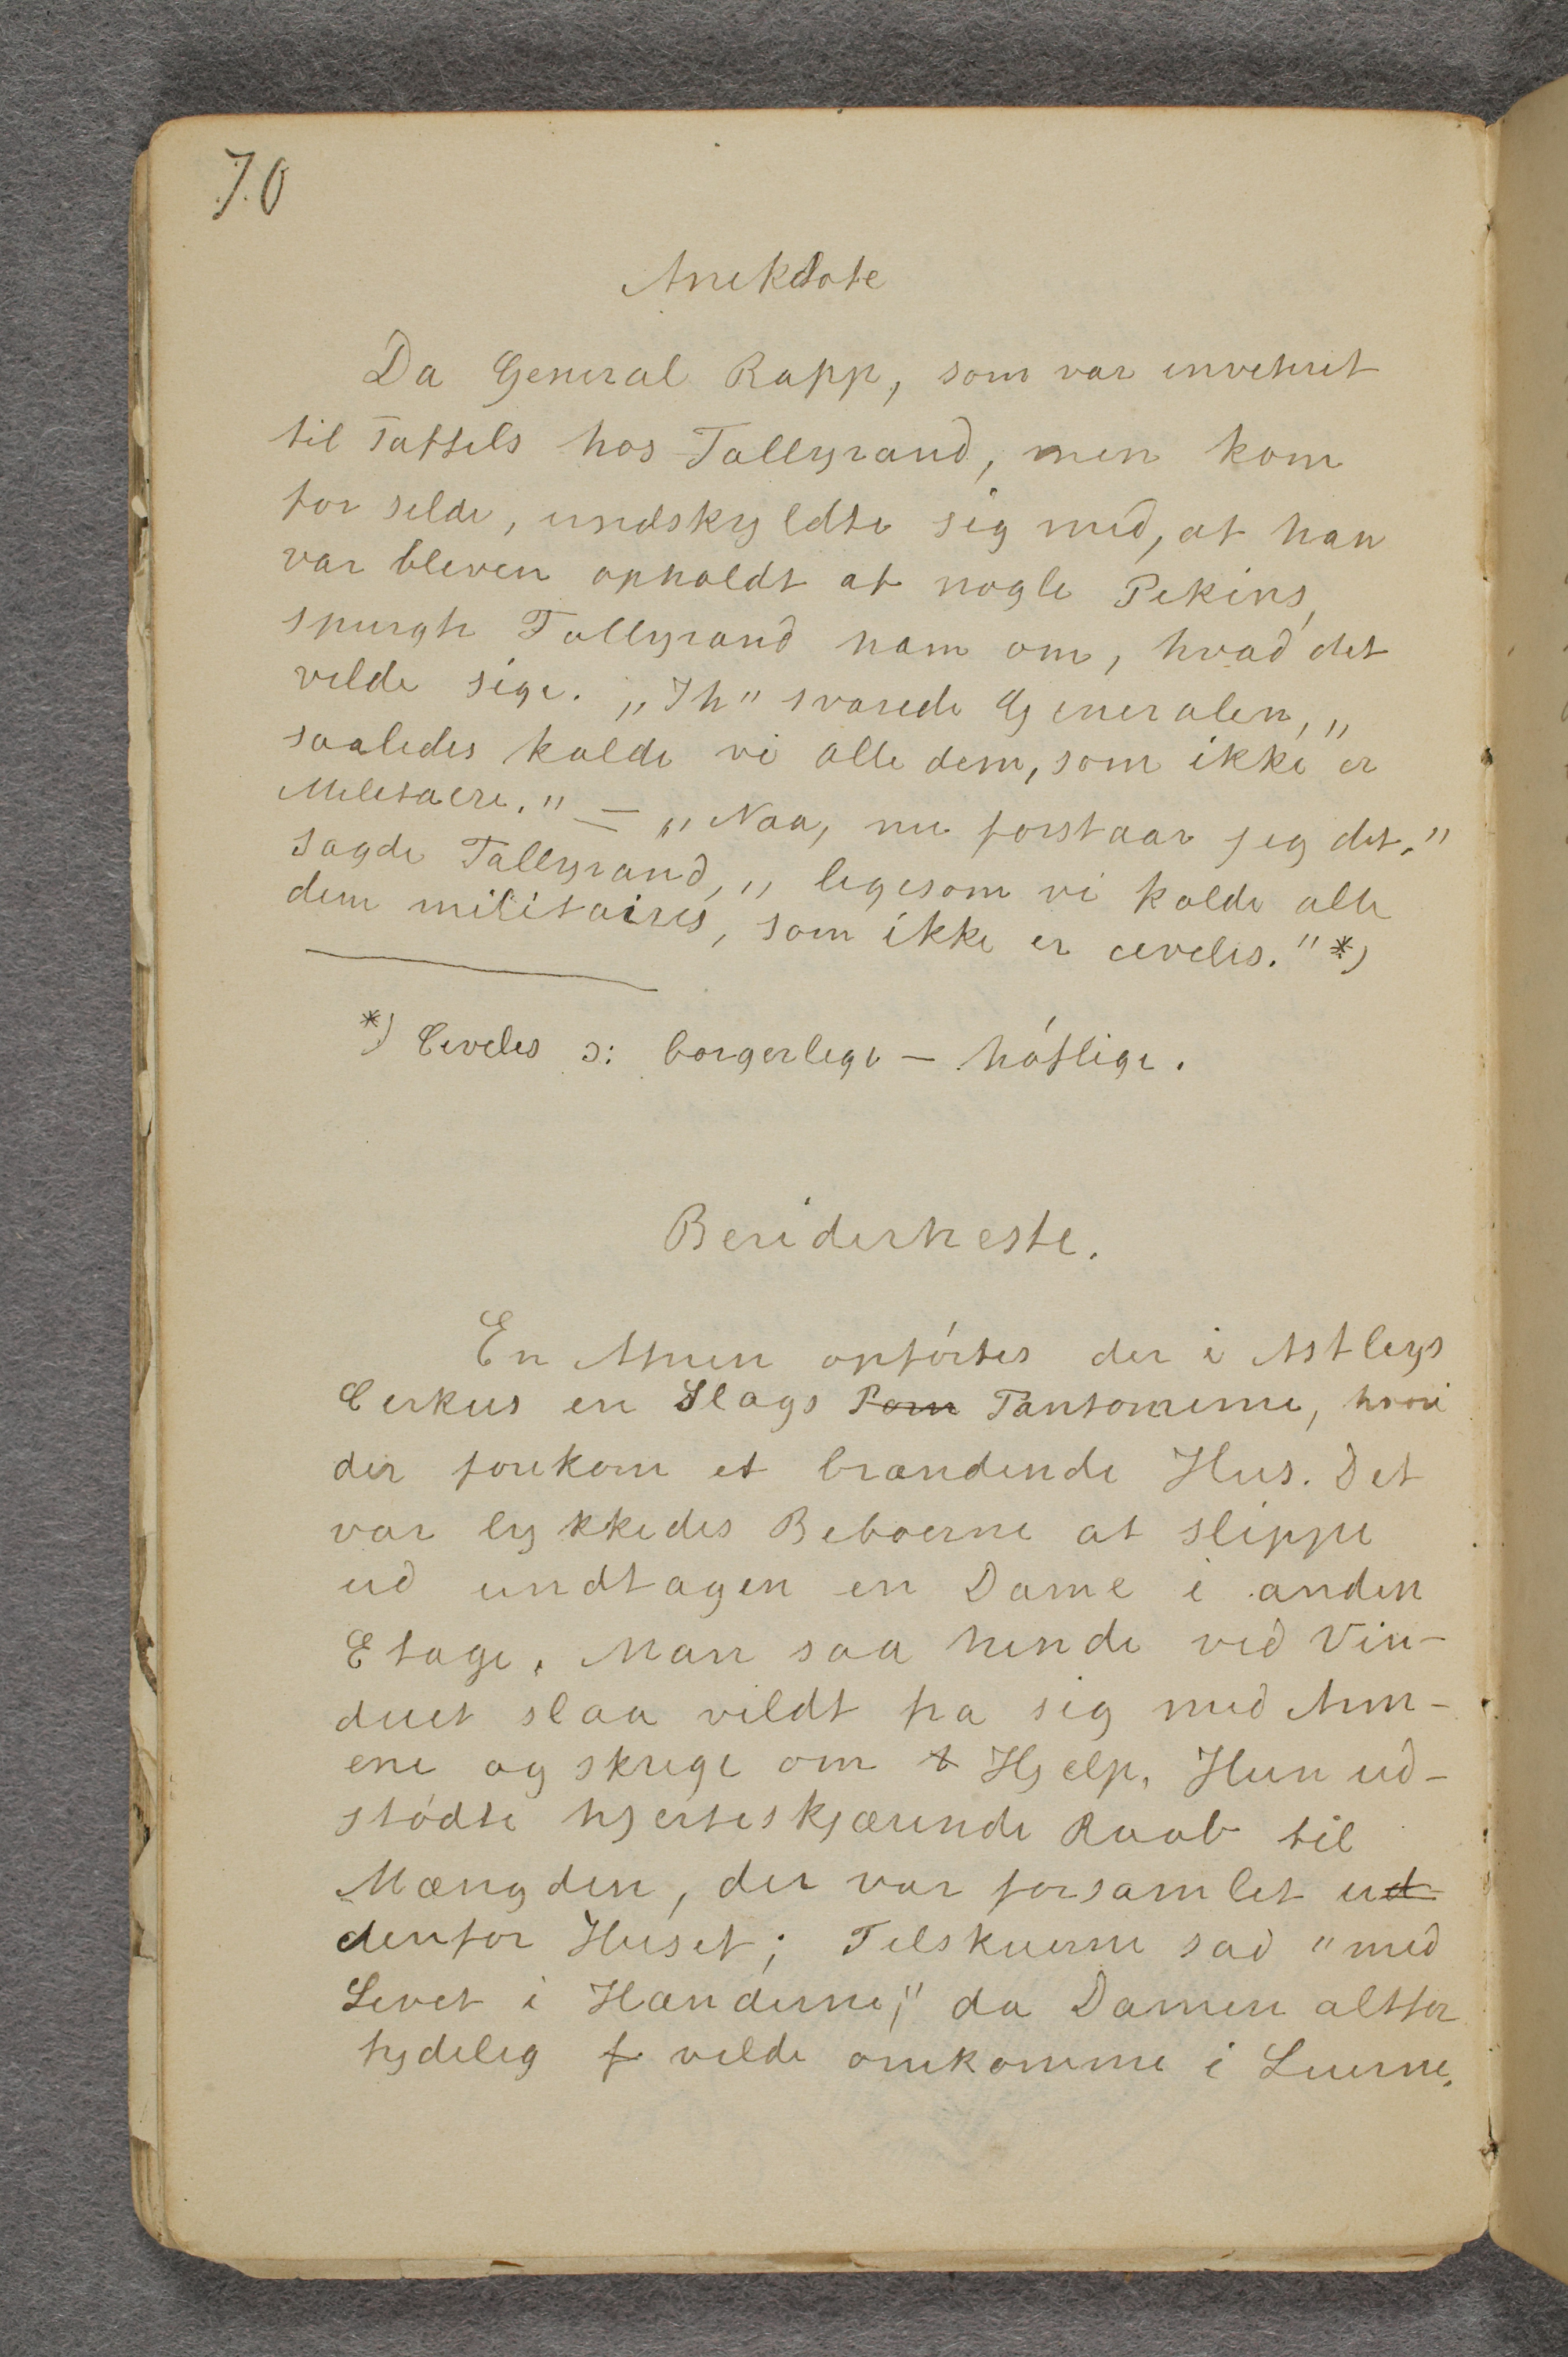 70
Anekdote
Da General Rapp, som var inviteret
til Taffels hos Tallyrand, men kom
for silde, undskyldte sig med, at han
var bleven opholdt af nogle Pekins,
spurgte Tallyrand ham om, hvad det
vilde sige. „Ih" svarede Generalen, „
saaledes kalde vi alle dem, som ikke er
Militaere." — „Naa, nu forstaar jeg det,"
sagde Tallyrand, „ligesom vi kalde alle
dem militaires, som ikke er civiles." *)
*) Civiles ɔ: borgerlige — høflige.
Beriderheste.
En Aften opførtes der i Astleys
Cirkus en Slags Pom Pantomime, hvori
der forekom et brændende Hus. Det
var lykkedes Beboerne at slippe
ud undtagen en Dame i anden
Etage. Man saa hende ved Vin-
duet slaa vildt fra sig med Arm-
ene og skrige om t Hjelp. Hun ud-
stødte hjerteskjærende Raab til
Mængden, der var forsamlet ud
denfor Huset; Tilskuerne sad "med
Livet i Hænderne," da Damen altfor
tydelig f vilde omkomme i Luerne.